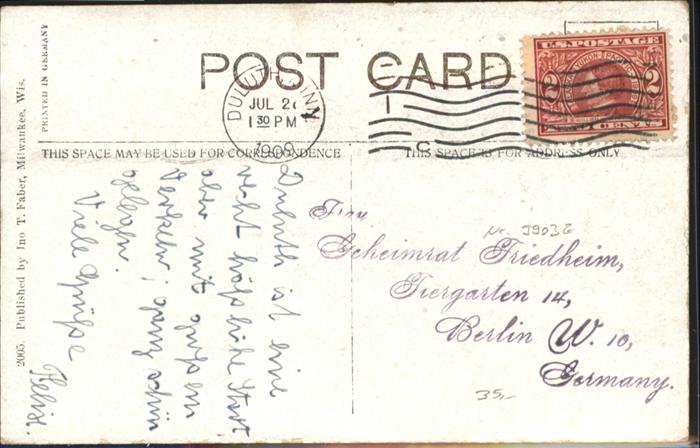 POST CARD
U.S. POSTAGE
2 2
CENTS
DULUTH, MINN.
JUL 2
1 30 PM
1909
THIS SPACE MAY BE USED FOR CORRESPONDENCE
THIS SPACE IS FOR ADDRESS ONLY
PRINTED IN GERMANY
2005. Published by Jno T. Faber, Milwaukee, Wis.
Duluth ist eine
recht hübsche Stadt
aber mit großem
! ganz schön
gelegen.
Viele Grüße
Felix.
Nr. J9036
Frau
Geheimrat Friedheim,
Tiergarten 14,
Berlin W. 10,
Germany.
35,-